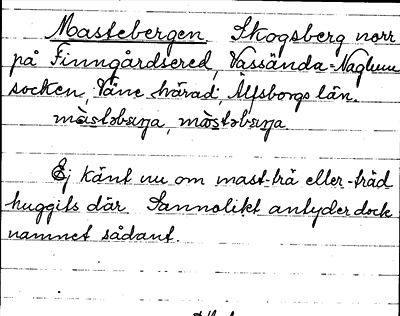 Mastebergen Skogsberg norr
på Finngårdsered, Vassända-Naglum
socken, Väne härad, Älfsborgs län.
màstəbærja, mòstəbærja
Ej känt nu om mast-trä eller -träd
huggits där. Sannolikt antyder dock
namnet sådant.